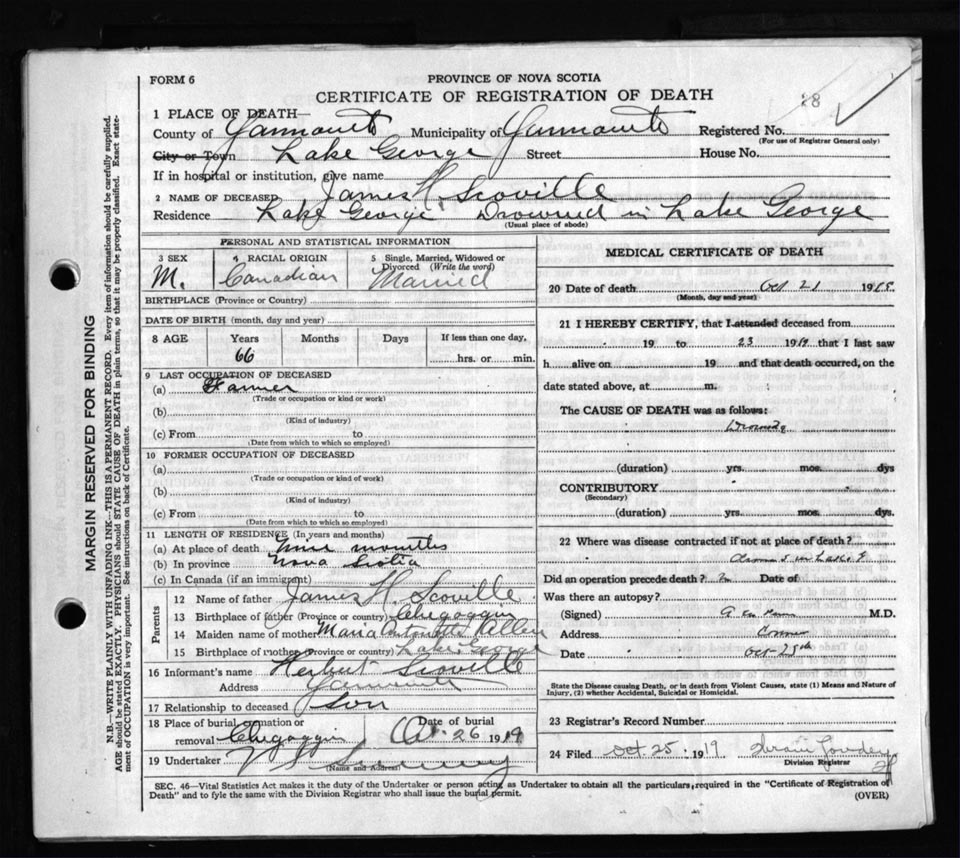 FORM 6
PROVINCE OF NOVA SCOTIA
CERTIFICATE OF REGISTRATION OF DEATH
28
1 PLACE OF DEATH—
County of Yarmouth Municipality of Yarmouth Registered No.
(For use of Registrar General only)
City or Town Lake George Street House No.
If in hospital or institution, give name
2 NAME OF DECEASED James H. Scoville
Residence Lake George Drowned in Lake George
(Usual place of abode)
PERSONAL AND STATISTICAL INFORMATION
3 SEX 4 RACIAL ORIGIN 5 Single, Married, Widowed or Divorced (Write the word)
M. Canadian Married
BIRTHPLACE (Province or Country)
DATE OF BIRTH (month, day and year)
8 AGE Years Months Days If less than one day,
66 hrs. or min.
9 LAST OCCUPATION OF DECEASED
(a) Farmer
(Trade or occupation or kind or work)
(b)
(Kind of industry)
(c) From to
(Date from which to which so employed)
10 FORMER OCCUPATION OF DECEASED
(a)
(Trade or occupation or kind of work)
(b)
(Kind of industry)
(c) From to
(Date from which to which so employed)
11 LENGTH OF RESIDENCE (In years and months)
(a) At place of death Nine months
(b) In province Nova Scotia
(c) In Canada (if an immigrant)
Parents
12 Name of father James H. Scoville
13 Birthplace of father (Province or country) Chegoggin
14 Maiden name of mother Maria Allen
15 Birthplace of mother (Province or country) Lake George
16 Informant's name Herbert Scoville
Address Yarmouth
17 Relationship to deceased Son
18 Place of burial cremation or removal Chegoggin Date of burial Oct. 26 1919
19 Undertaker
(Name and Address)
MEDICAL CERTIFICATE OF DEATH
20 Date of death Oct 21 19
(Month, day and year)
21 I HEREBY CERTIFY, that I attended deceased from
19 to 23 1919 that I last saw
h alive on 19 and that death occurred, on the
date stated above, at m.
The CAUSE OF DEATH was as follows:
Drowning
(duration) yrs. mos. dys
CONTRIBUTORY
(Secondary)
(duration) yrs. mos. dys.
22 Where was disease contracted if not at place of death?
Did an operation precede death? Date of
Was there an autopsy?
(Signed) M.D.
Address
Date Oct-25th
State the Disease causing Death, or in death from Violent Causes, state (1) Means and Nature of
Injury, (2) whether Accidental, Suicidal or Homicidal.
23 Registrar's Record Number
24 Filed Oct. 25 1919
Division Registrar
SEC. 46—Vital Statistics Act makes it the duty of the Undertaker or person acting as Undertaker to obtain all the particulars required in the "Certificate of Registration of
Death" and to fyle the same with the Division Registrar who shall issue the burial permit.
(OVER)
MARGIN RESERVED FOR BINDING
N.B.—WRITE PLAINLY WITH UNFADING INK—THIS IS A PERMANENT RECORD. Every item of information should be carefully supplied.
AGE should be stated EXACTLY. PHYSICIANS should STATE CAUSE OF DEATH in plain terms, so that it may be properly classified. Exact state-
ment of OCCUPATION is very important. See instructions on back of Certificate.